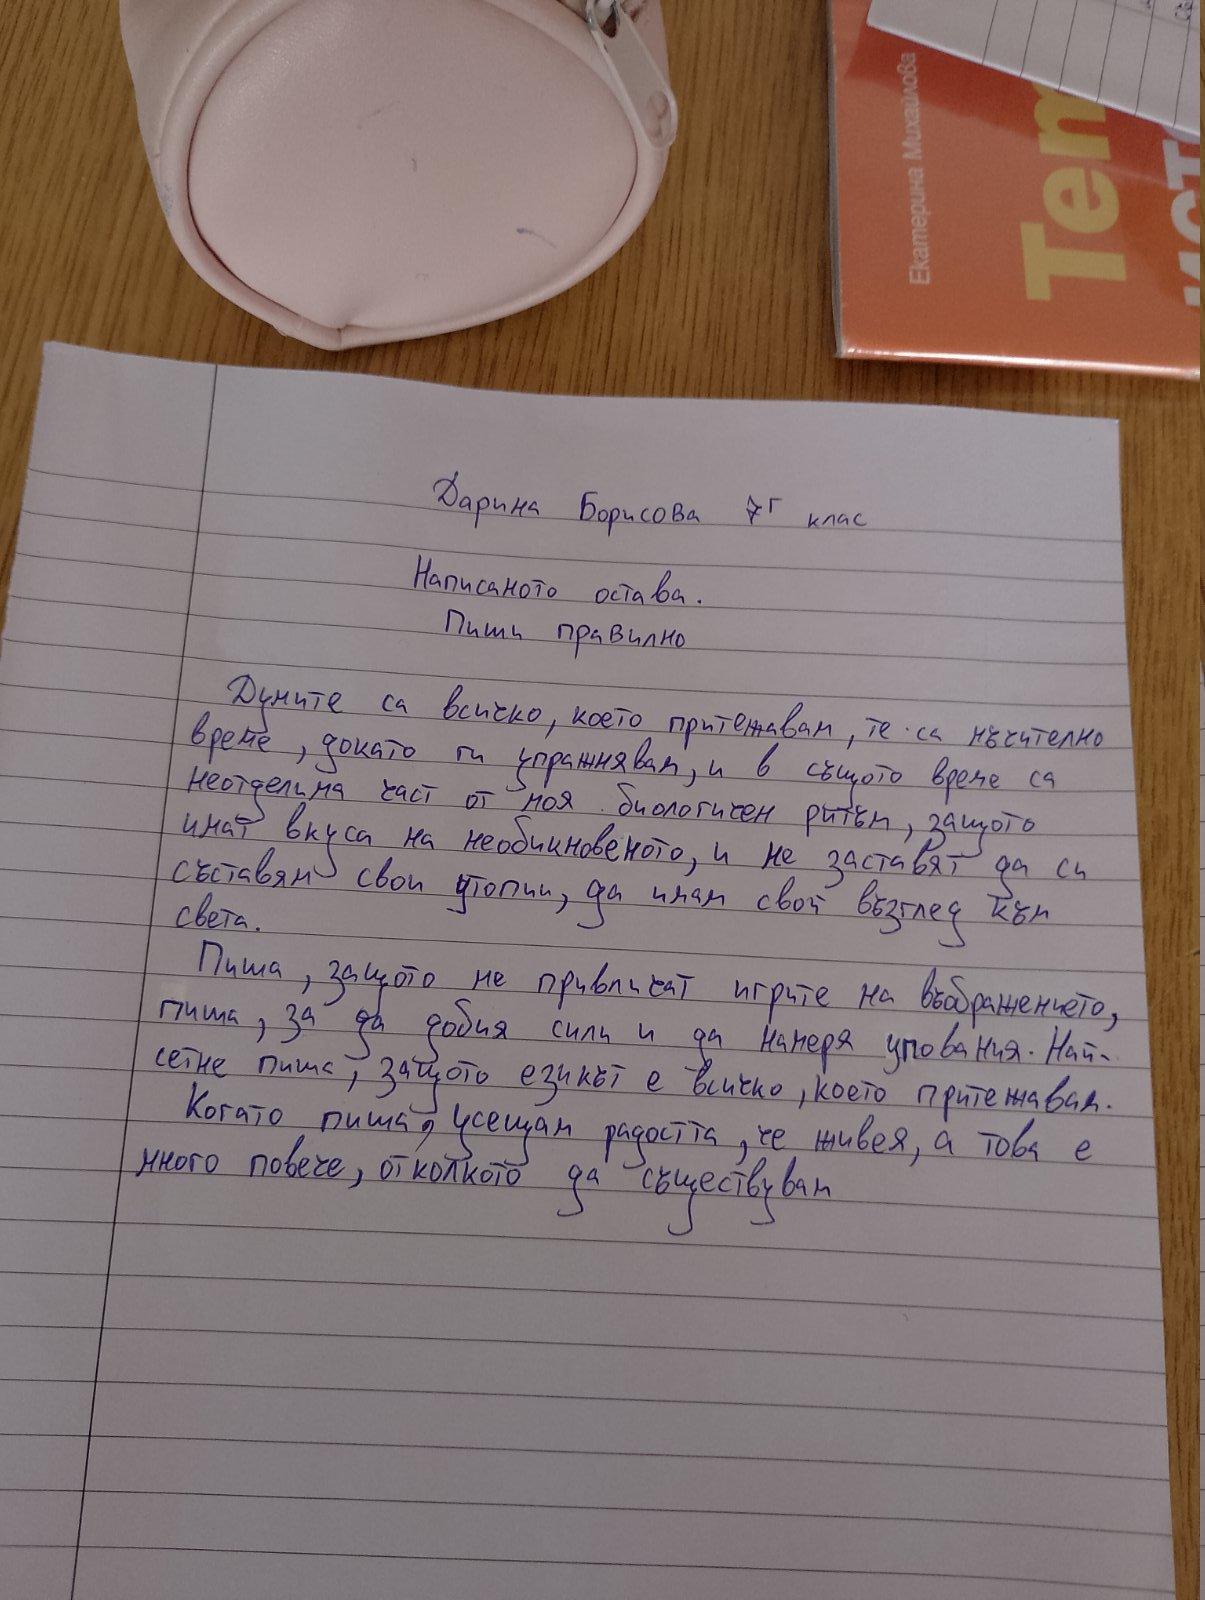 Екатерина Михайлова
Тет
ист
Дарина Борисова 7г клас
Написаното остава.
Пиши правилно
Думите са всичко, което притежавам, те са мъчително
време, докато ги упражнявам, и в същото време са
неотделима част от моя биологичен ритъм, защото
имат вкуса на необикновеното, и ме заставят да си
съставям свои утопии, да имам свой възглед към
света.
Пиша, защото ме привличат игрите на въображението,
пиша, за да добия сили и да намеря упования. Най-
сетне пиша, защото езикът е всичко, което притежавам.
Когато пиша, усещам радостта, че живея, а това е
много повече, отколкото да съществувам